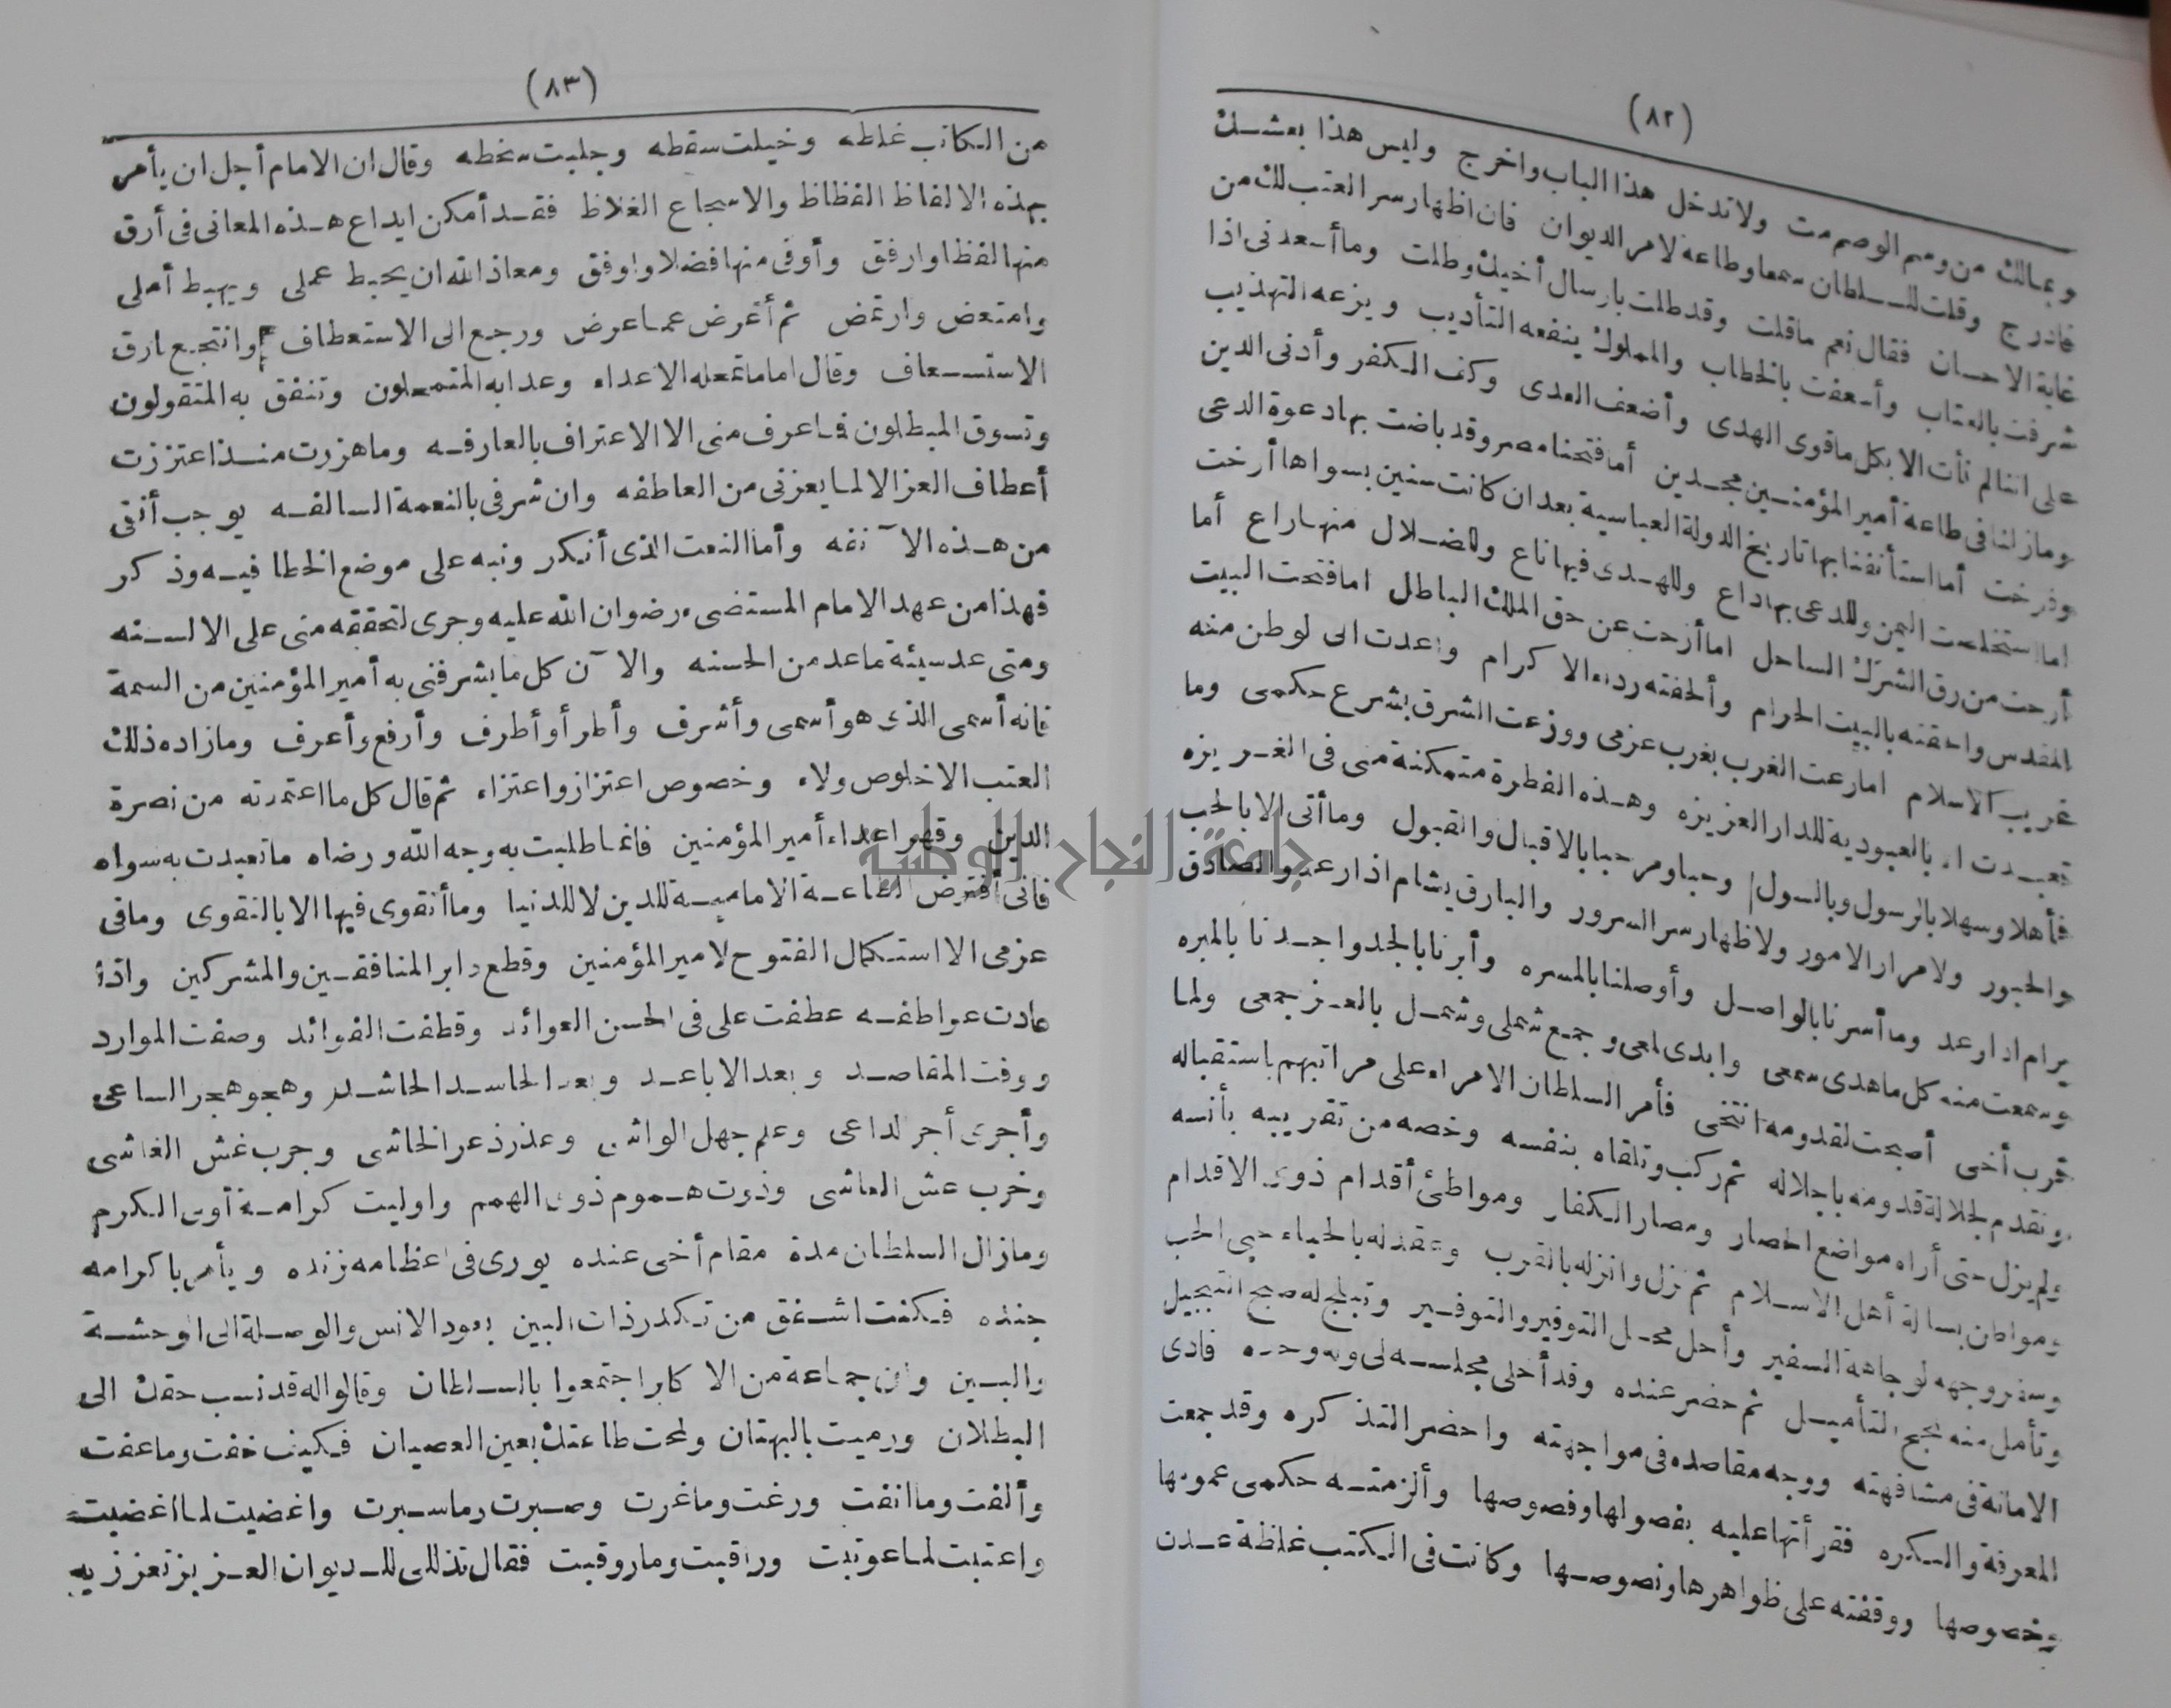 (٨٢)
وبمالك من وسم الوصم مت ولا تدخل هذا الباب واخرج وليس هذا بعشك
فادرج وقلت للسلطان سمعا وطاعة لامر الديوان فان اظهار سر العتب لك من
غاية الاحسان فقال نعم ما قلت وقد طلت بارسال أخيك وطلت وما أسعدنى اذا
شرفت بالعتاب وأسعفت بالخطاب والمملوك ينفعه التأديب ويزعه التهذيب
على اننا لم نأت الا بكل ما قوى الهدى وأضعف العدى وكف الكفر وأدنى الدين
وما زلنا فى طاعة أمير المؤمنين مجدين أما فتحنا مصر وقد باضت بها دعوة الدعى
وفرخت أما استأنفنا بها تاريخ الدولة العباسية بعد ان كانت سنين بسواها أرخت
اما استخلصت اليمن وللدعى بها داع وللهدى فيها ناع وللضلال منها راع أما
أرحت من رق الشرك الساحل اما أزحت عن حق الملك الباطل اما فتحت البيت
المقدس والحقته بالبيت الحرام وألحفته رداء الاكرام واعدت الى لوطن منه
غريب الاسلام اما رعت الغرب بغرب عزمى ووزعت الشرق بشرع حكمى وما
تعبدت الا بالعبودية للدار العزيزه وهذه الفطرة متمكنة منى فى الغريزه
فأهلا وسهلا بالرسول وبالسول وحبا ومرحبا بالاقبال والقبول وما أتى الا بالحب
والحبور ولا مرار الامور ولاظهار سر السرور والبارق يشام اذا رعد والصادق
يرام اذا وعد وما أسرنا بالواصل وأوصلنا بالمسره وأبرنا بالجد واجدنا بالمبره
وسمعت منه كل ما هدى سمعى وابدى لمعى وجمع شملى وشمل بالعز جمعى ولما
قرب أخى أصبحت لقدومه انتخى فأمر السلطان الامراء على مراتبهم باستقباله
وتقدم لجلالة قدومه باجلاله ثم ركب وتلقاه بنفسه وخصه من تقريبه بأنسه
ولم يزل حتى أراه مواضع الحصار ومصار الكفار ومواطئ أقدام ذوى الاقدام
ومواطن بسالة أهل الاسلام ثم نزل وانزله بالقرب وعقد له بالحياء حبى الحب
وسفر وجهه لوجاهة السفير وأحل محل التوقير والتوفير وتبلج له صبح التبجيل
وتأمل منه نجح التأميل ثم حضر عنده وقد أخلى مجلسه لى وله وحده فأدى
الامانة فى مشافهته ووجه مقاصده فى مواجهته واحضر التذكره وقد جمعت
المعرفة والنكره فقرأتها عليه بفصولها وفصوصها وألزمته حكمى عمومها
وخصوصها ووقفته على ظواهرها ونصوصها وكانت فى الكتب غلظة عدت
(٨٣)
من الكاتب غلطه وخيلت سقطه وجلبت سخطه وقال ان الامام أجل ان يأمر
بهذه الالفاظ الفظاظ والاسجاع الغلاظ فقد أمكن ايداع هذه المعانى فى أرق
منها لفظا وارفق وأوفى منها فضلا واوفق ومعاذ الله ان يحبط عملى ويهبط أملى
وامتعض وارتمض ثم أعرض عما عرض ورجع الى الاستعطاف وانتجع بارق
الاستسعاف وقال اما ما تمحله الاعداء وعدا به المتمحلون وتنفق به المتقولون
وتسوق المبطلون فما عرف منى الا الاعتراف بالعارفه وما هززت منذ اعتززت
أعطاف العز الا لما يعزنى من العاطفه وان شرفى بالنعمة السالفه يوجب أنفى
من هذه الآنفه وأما النعت الذى أنكر ونبه على موضع الخطا فيه وذكر
فهذا من عهد الامام المستضىء رضوان الله عليه وجرى لتحققه منى على الالسنه
ومتى عد سيئة ما عد من الحسنه والآن كل ما يشرفنى به أمير المؤمنين من السمة
فانه أسمى الذى هو أسمى وأشرف وأطرأ وأطرف وأرفع وأعرف وما زاده ذلك
العتب الا خلوص ولاء وخصوص اعتزاز واعتزاء ثم قال كل ما اعتمدته من نصرة
الدين وقهر اعداء أمير المؤمنين فانما طلبت به وجه الله ورضاه ما تعبدت به سواه
فانى أفترض الطاعة الامامية للدين لا للدنيا وما أتقوى فيها الا بالتقوى وما فى
عزمى الا استكمال الفتوح لامير المؤمنين وقطع دابر المنافقين والمشركين واذا
عادت عواطفه عطفت على فى الحسن العوائد وقطفت الفوائد وصفت الموارد
ووفت المقاصد وبعد الاباعد وبعد الحاسد الحاشد وهجو هجر الساعى
وأجرى أجر لداعى وعلم جهل الواشى وعذر ذعر الخاشى وجرب غش الغاشى
وخرب عش العاشى وذوت هموم ذوى الهمم واوليت كرامة أولى الكرم
وما زال السلطان مدة مقام أخى عنده يورى فى اعظامه زنده ويأمر باكرامه
جنده فكنت اشفق من تكدر ذات البين بعود الانس والوصلة الى الوحشة
والبين وان جماعة من الاكابر اجتمعوا بالسلطان وقالوا له قد نسب حقك الى
البطلان ورميت بالبهتان ولمحت طاعتك بعين العصيان فكيف خفت وما عفت
وألفت وما انفت ورغت وما غرت وصبرت وما سبرت واغضيت لما اغضيت
واعتبت لما عوتبت وراقبت وما روقبت فقال تذللى للديوان العزيز تعزز به